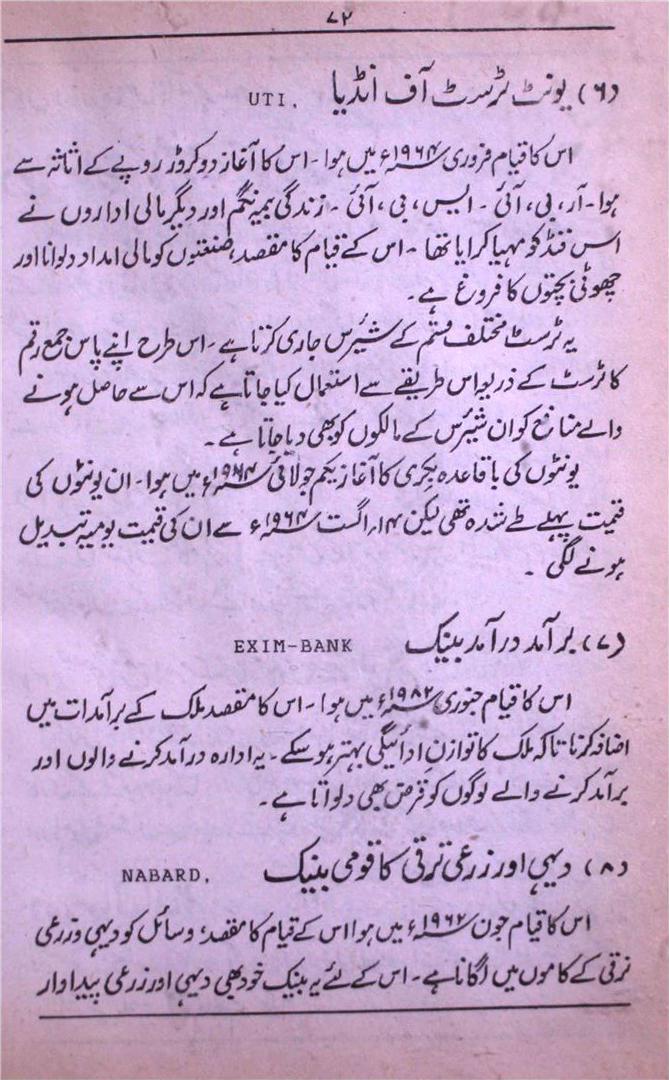 ۷۲
(۶) یونٹ ٹرسٹ آف انڈیا UTI,
اس کا قیام فروری ۱۹۶۴ء میں ہوا۔ اس کا آغاز دو کروڑ روپے کے اثاثہ سے
ہوا۔ آر، بی، آئی۔ ایس، بی، آئی۔ زندگی بیمہ نگم اور دیگر مالی اداروں نے
اس فنڈ کو مہیا کرایا تھا۔ اس کے قیام کا مقصد، صنعتوں کو مالی امداد دلوانا اور
چھوٹی بچتوں کا فروغ ہے۔
یہ ٹرسٹ مختلف قسم کے شیئرس جاری کرتا ہے۔ اس طرح اپنے پاس جمع رقم
کا ٹرسٹ کے ذریعہ اس طریقے سے استعمال کیا جاتا ہے کہ اس سے حاصل ہونے
والے منافع کو ان شیئرس کے مالکوں کو بھی دیا جاتا ہے۔
یونٹوں کی با قاعدہ بکری کا آغاز یکم جولائی ۱۹۶۴ء میں ہوا۔ ان یونٹوں کی
قیمت پہلے طے شدہ تھی لیکن ۱۴؍ اگست ۱۹۶۴ء سے ان کی قیمت یومیہ تبدیل
ہونے لگی۔
(۷) برآمد درآمد بینک EXIM-BANK
اس کا قیام جنوری ۱۹۸۲ء میں ہوا۔ اس کا مقصد ملک کے برآمدات میں
اضافہ کرنا تاکہ ملک کا توازنِ ادائیگی بہتر ہو سکے۔ یہ ادارہ درآمد کرنے والوں اور
برآمد کرنے والے لوگوں کو قرض بھی دلواتا ہے۔
(۸) دیہی اور زرعی ترقی کا قومی بینک NABARD,
اس کا قیام جون ۱۹۶۲ء میں ہوا اس کے قیام کا مقصد، وسائل کو دیہی و زرعی
ترقی کے کاموں میں لگانا ہے۔ اس کے لئے یہ بینک خود بھی دیہی اور زرعی پیداوار